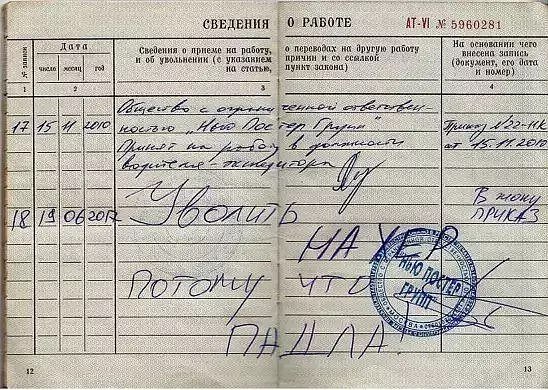 СВЕДЕНИЯ О РАБОТЕ АТ-VI № 5960281
№ записи
Дата
число месяц год
Сведения о приеме на работу, о переводах на другую работу
и об увольнении (с указанием причин и со ссылкой
на статью, пункт закона)
На основании чего
внесена запись
(документ, его дата
и номер)
1 2 3 4
Общество с ограниченной ответствен-
17 15 11 2010 ностью „Нью Постер Групп" Приказ №22-НК
Принят на работу в должности от 15.11.2010
водителя-экспедитора
18 19 06 2012 Уволить В жопу
ПРИКАЗ
НА ХЕР
ПОТОМУ ЧТО
ПАДЛА!
НЬЮ ПОСТЕР
ГРУПП
МОСКВА
12 13